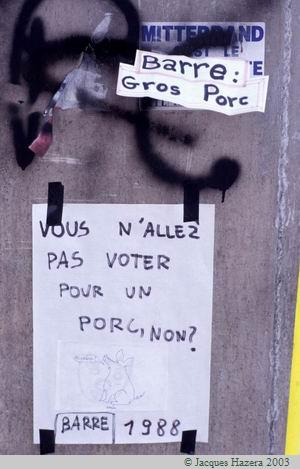 MITTERRAND
EST LE
Barre:
Gros Porc
VOUS N'ALLEZ
PAS VOTER
POUR UN
PORC, NON?
BARRE 1988
© Jacques Hazera 2003